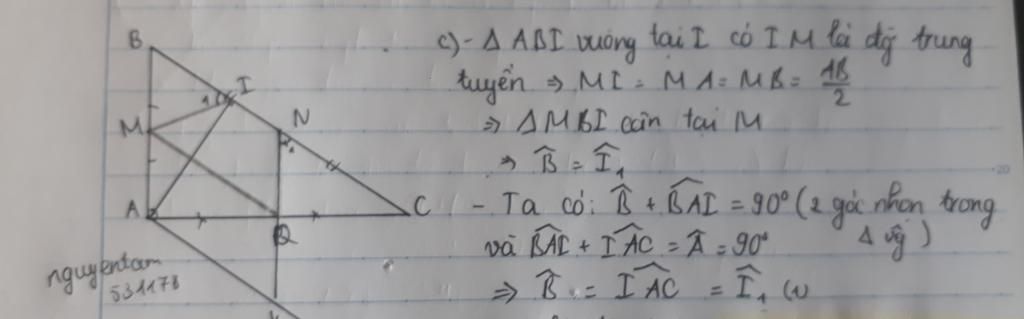 B
I
1
M
N
A
C
Q
nguyentam
531178
c) - Δ ABI vuông tại I có IM là đg trung
tuyến ⇒ MI = MA = MB = AB/2
⇒ Δ MBI cân tại M
⇒ B̂ = Î₁
- Ta có: B̂ + BAI^ = 90° (2 góc nhọn trong
Δ vg)
và BAI^ + IAC^ = Â = 90°
⇒ B̂ = IAC^ = Î₁ (1)